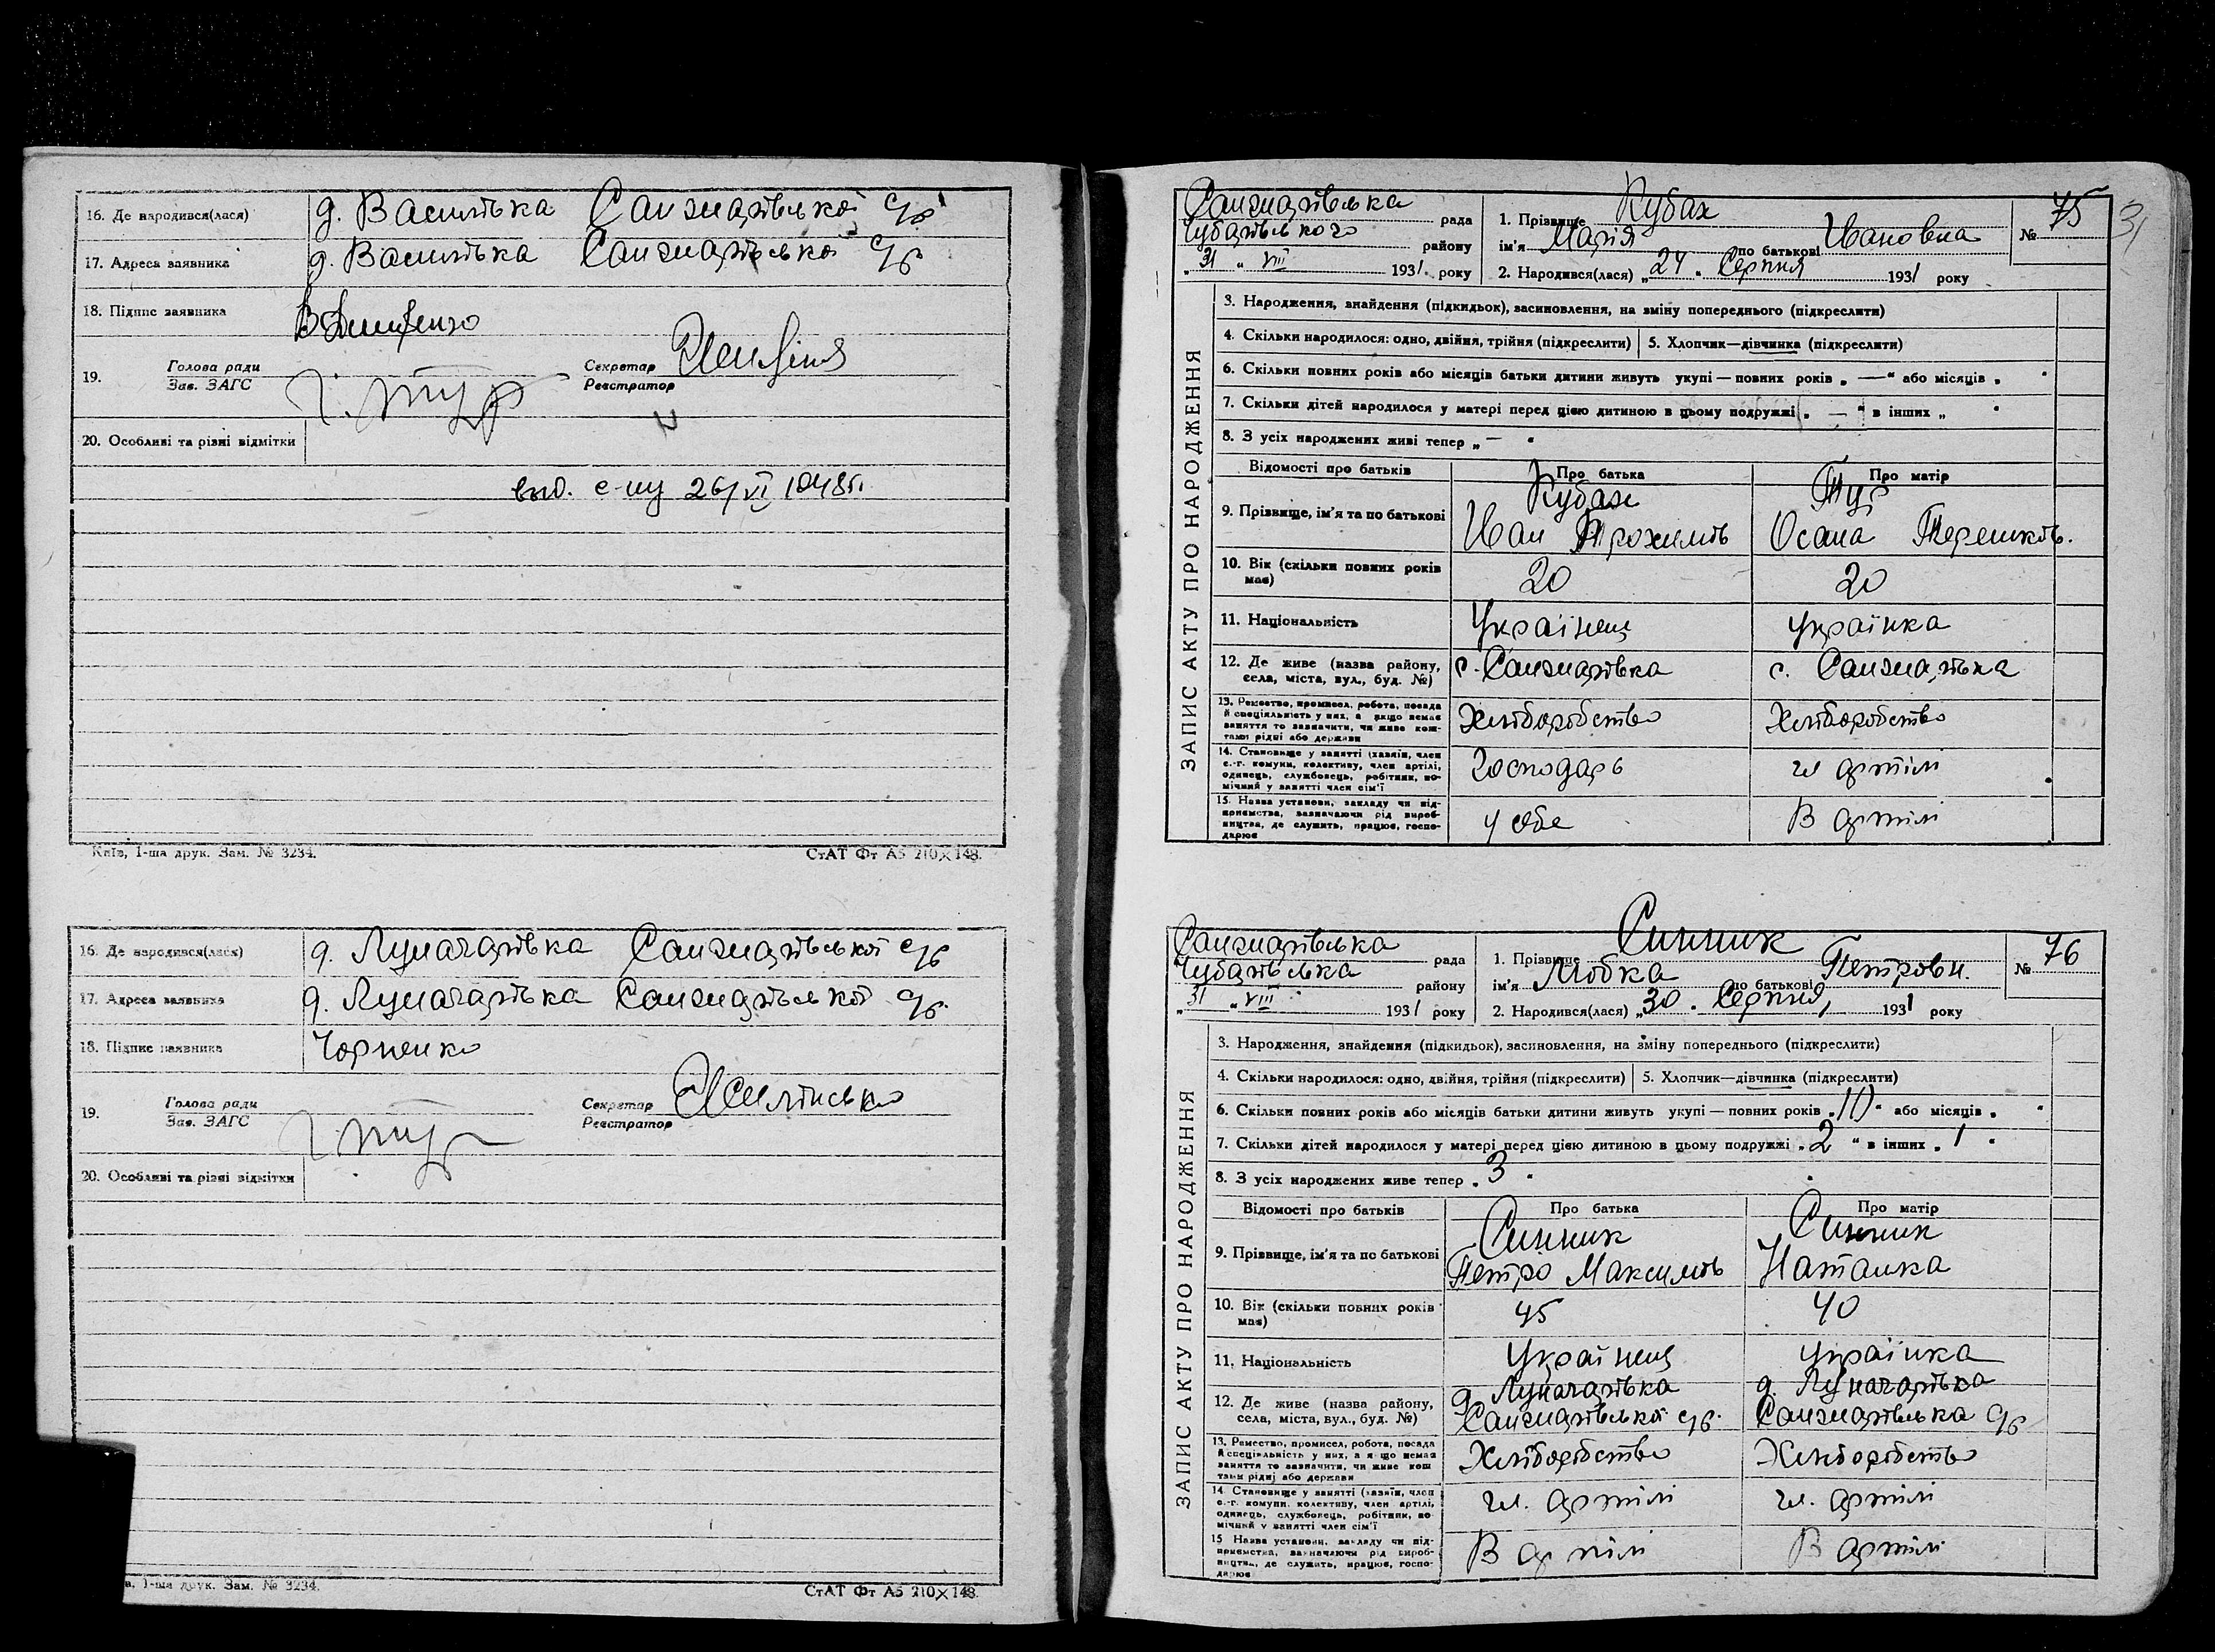 16. Де народився(лася) д. Василівка Санжарівської с/р
17. Адреса заявника д. Василівка Санжарівської с/р
18. Підпис заявника
19. Голова ради
Зав. ЗАГС
Секретар
Реєстратор
20. Особливі та різні відмітки
выд. с-цу 26/VI 1948 г.
Київ, 1-ша друк. Зам. № 3234.
СтАТ Фт А5 210×148.
16. Де народився(лася) д. Луначарівка Санжарівської с/р
17. Адреса заявника д. Луначарівка Санжарівської с/р.
18. Підпис заявника Чорненко
19. Голова ради
Зав. ЗАГС
Секретар
Реєстратор
20. Особливі та різні відмітки
в, 1-ша друк. Зам. № 3234.
СтАТ Фт А5 210×148.
31
Санжарівська рада
Чубарівського району
„31 „ VIII 1931. року
1. Прізвище Кубах
ім'я Марія по батькові Івановна
2. Народився(лася) „24 „ Серпня 1931 року
№ 75
ЗАПИС АКТУ ПРО НАРОДЖЕННЯ
3. Народження, знайдення (підкидьок), засиновлення, на зміну попереднього (підкреслити)
4. Скільки народилося: одно, двійня, трійня (підкреслити)
5. Хлопчик—дівчинка (підкреслити)
6. Скільки повних років або місяців батьки дитини живуть укупі — повних років „ —" або місяців „ "
7. Скільки дітей народилося у матері перед цією дитиною в цьому подружжі „ — " в інших „ "
8. З усіх народжених живі тепер „ — "
Відомості про батьків
Про батька
Про матір
9. Прізвище, ім'я та по батькові
Кубах
Иван Трохимів
Тур
Осана Терешків.
10. Вік (скільки повних років має)
20
20
11. Національність
Українець
українка
12. Де живе (назва району, села, міста, вул., буд. №)
с. Санжарівка
с. Санжарівка
13. Ремество, промисел, робота, посада й спеціяльність у них, а якщо немає заняття то зазначити, чи живе коштами рідні або держави
Хліборобство
Хліборобство
14. Становище у занятті (хазяїн, член с.-г. комуни, колективу, член артілі, одинець, службовець, робітник, помічний у занятті член сім'ї
Господарь
чл артілі
15. Назва установи, закладу чи підприємства, зазначаючи рід виробництва, де служить, працює, господарює
у себе
В артілі
Санжарівська рада
Чубарівська району
„31 „ VIII 1931 року
1. Прізвище Синник
ім'я Любка по батькові Петровн.
2. Народився(лася) „30 „ Серпня, 1931 року
№ 76
ЗАПИС АКТУ ПРО НАРОДЖЕННЯ
3. Народження, знайдення (підкидьок), засиновлення, на зміну попереднього (підкреслити)
4. Скільки народилося: одно, двійня, трійня (підкреслити)
5. Хлопчик—дівчинка (підкреслити)
6. Скільки повних років або місяців батьки дитини живуть укупі — повних років „ " або місяців „ "
7. Скільки дітей народилося у матері перед цією дитиною в цьому подружжі „2 " в інших „1 "
8. З усіх народжених живе тепер „3 "
Відомості про батьків
Про батька
Про матір
9. Прізвище, ім'я та по батькові
Синник
Петро Максимів
Синник
Наталка
10. Вік (скільки повних років має)
45
40
11. Національність
Українець
українка
12. Де живе (назва району, села, міста, вул., буд. №)
д. Луначарівка
Санжарівської с/р.
д. Луначарівка
Санжарівська с/р
13. Ремество, промисел, робота, посада й спеціяльність у них, а якщо немає заняття то зазначити, чи живе коштами рідні або держави
Хліборобство
Хліборобство
14. Становище у занятті (хазяїн, член с.-г. комуни, колективу, член артілі, одинець, службовець, робітник, помічний у занятті член сім'ї
чл. артілі
чл. артілі
15. Назва установи, закладу чи підприємства, зазначаючи рід виробництва, де служить, працює, господарює
В артілі
В артілі